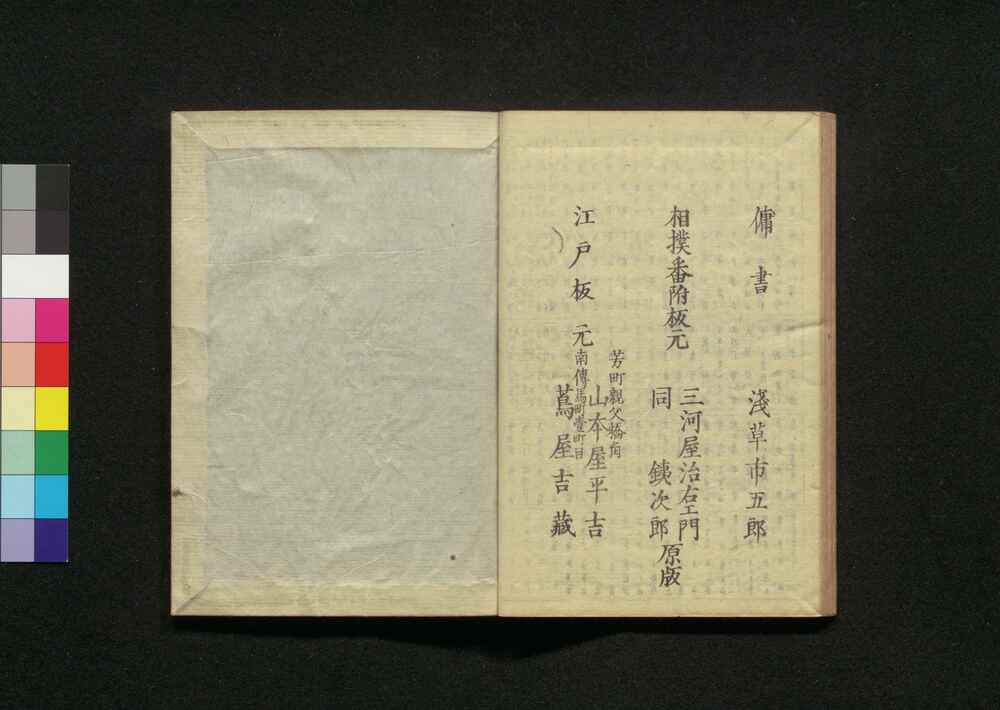 傭書 淺草市五郎
相撲番附板元
三河屋治右エ門
同 銕次郎
原版
江戸板元
芳町親父橋角
山本屋平吉
南傳馬町壹町目
蔦屋吉藏